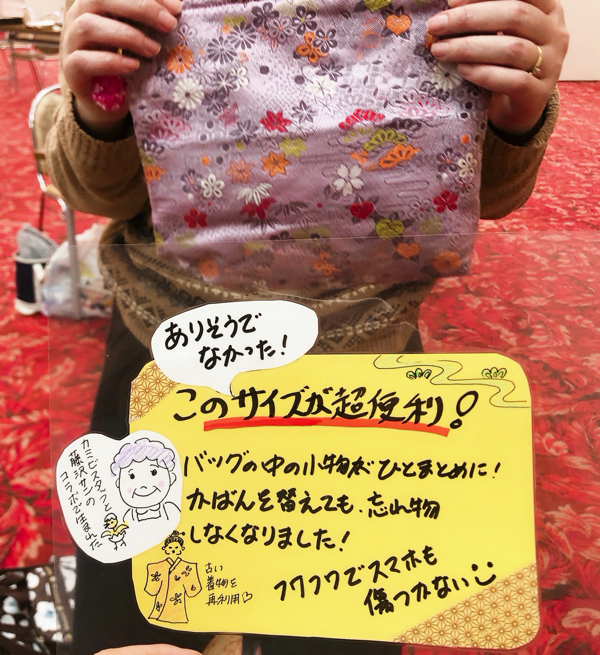 ありそうで
なかった!
このサイズが超便利!
バッグの中の小物がひとまとめに!
かばんを替えても、忘れ物
しなくなりました!
フワフワでスマホも
傷つかない
カミビスタッフと
藤沢サンの
コラボで生まれた
古い
着物を
再利用♡